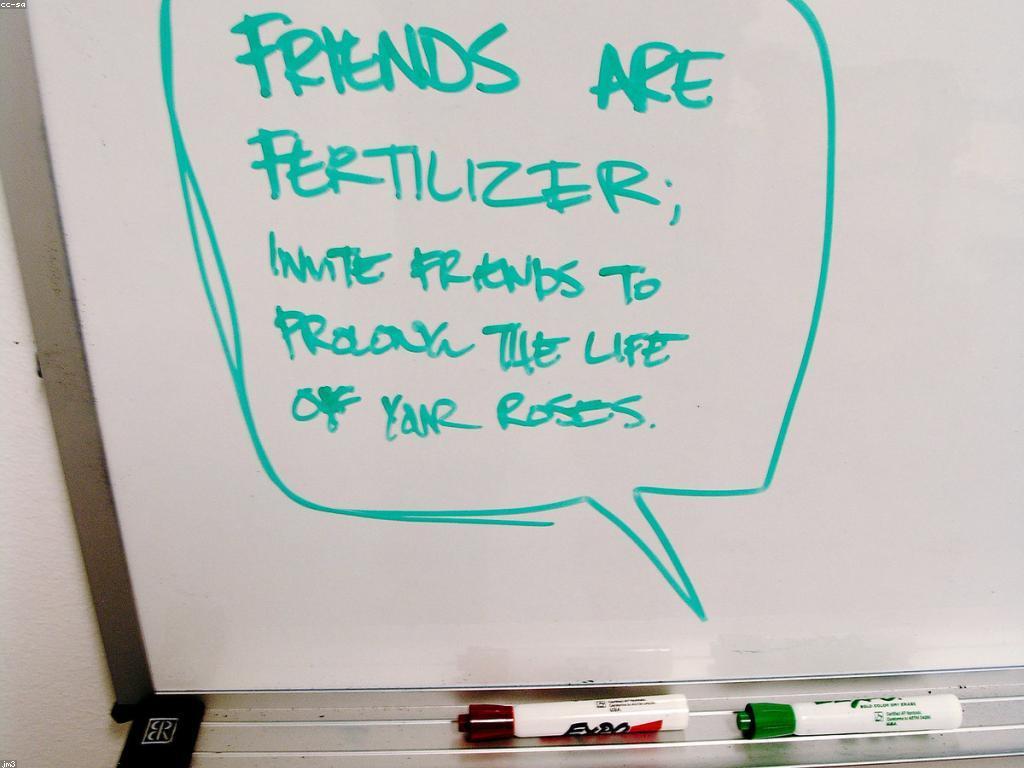 cc-sa
FRIENDS ARE
FERTILIZER;
INVITE FRIENDS TO
PROLONG THE LIFE
OF YOUR ROSES.
EXPO
BOLD COLOR DRY ERASE
jm3